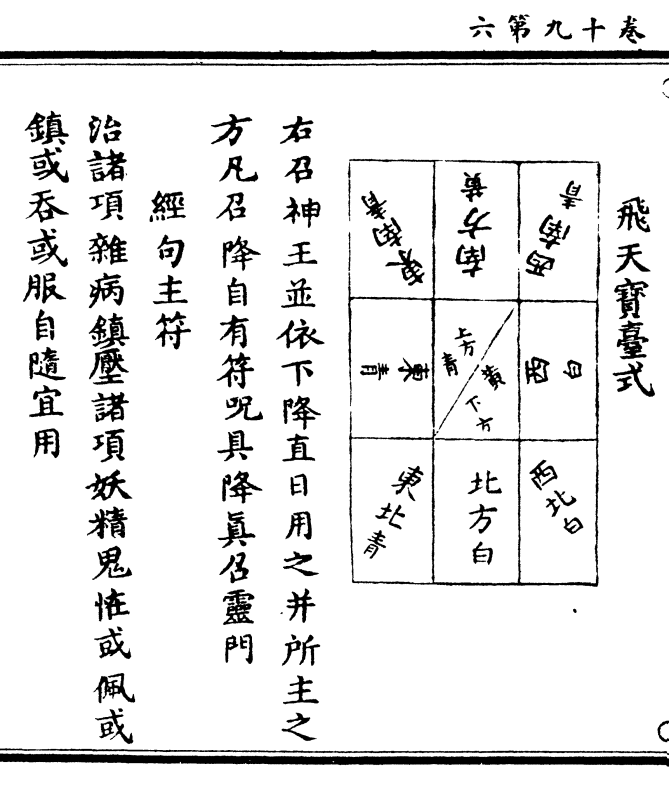 卷十九第六
飛天寶臺式
西南青
西白
西北白
南方黃
上方青
黃下方
北方白
東南青
東青
東北青
右召神王並依下降直日用之并所主之
方凡召降自有符呪具降眞召靈門
經句主符
治諸項雜病鎮壓諸項妖精鬼恠或佩或
鎮或吞或服自隨宜用